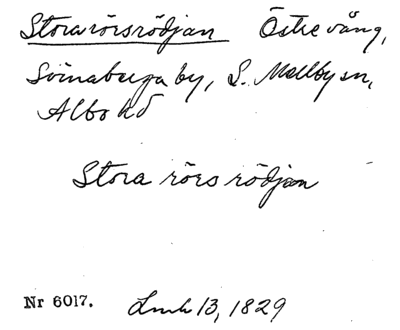 Storarörsrödjan Östre vång,
Svinaberga by, S. Mellby sn,
Albo hd
Stora rörs rödjan
Nr 6017. Lmk 13, 1829